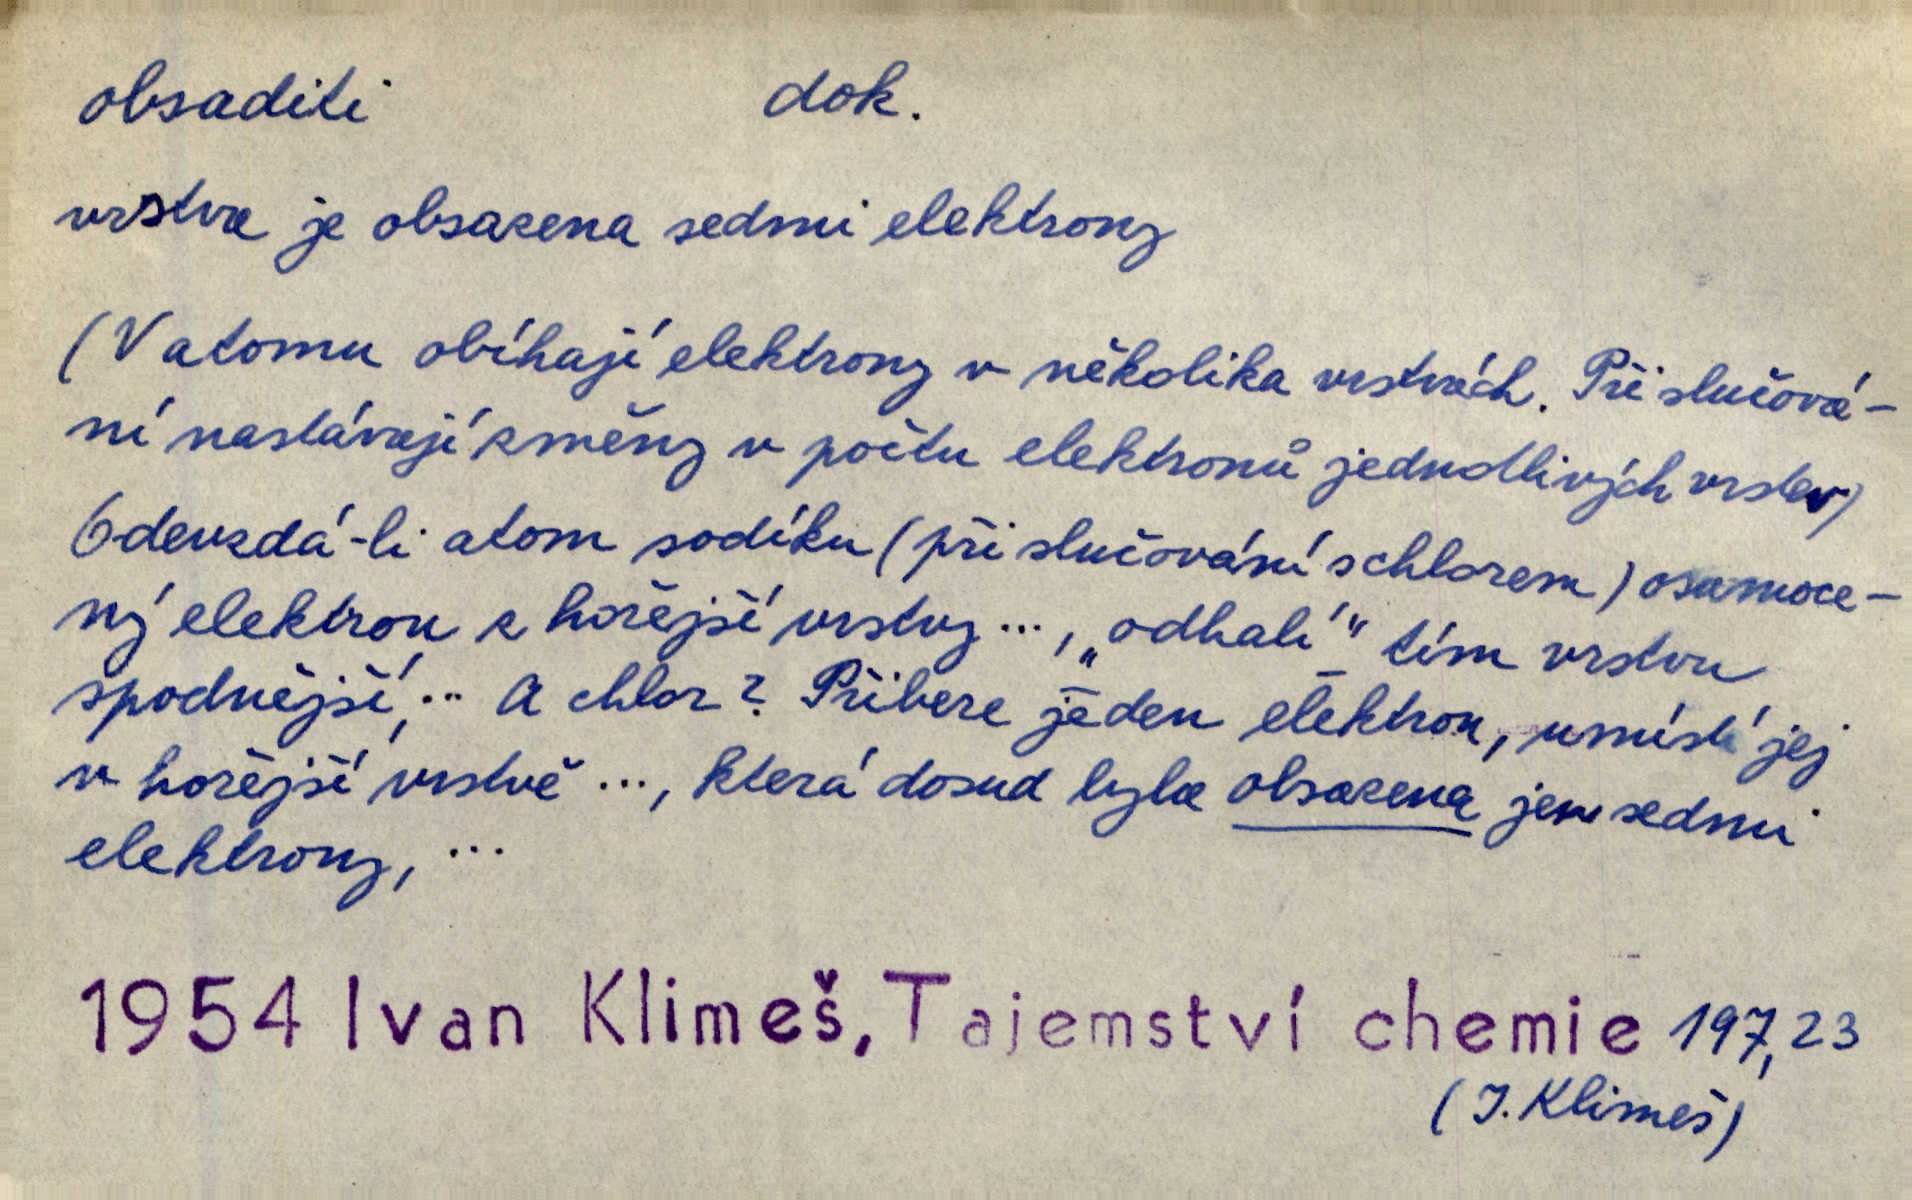 obsaditi dok.
vrstva je obsazena sedmi elektrony
(V atomu obíhají elektrony v několika vrstvách. Při slučová-
ní nastávají změny v počtu elektronů jednotlivých vrstev)
Odevzdá-li atom sodíku (při slučování s chlorem) osamoce-
ný elektron z hořejší vrstvy ..., „odhalí" tím vrstvu
spodnější, ... A chlor? Přibere jeden elektron, umístí jej
v hořejší vrstvě ..., která dosud byla obsazena jen sedmi
elektrony, ...
1954 Ivan Klimeš, Tajemství chemie 197,23
(I. Klimeš)